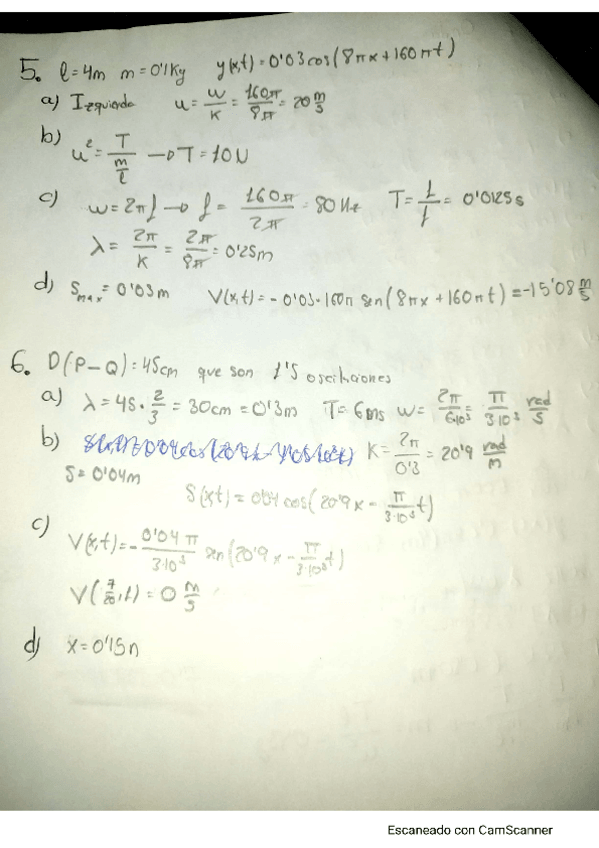 5. l=4m m=0'1Kg y(x,t)=0'03cos(8πx+160πt)
a) Izquierda u=w/k=160π/8π=20 m/s
b) u²=T/(m/l) → T=10N
c) w=2πf → f=160π/2π=80Hz T=1/f=0'0125s
λ=2π/k=2π/8π=0'25m
d) Smax=0'03m V(x,t)=-0'03·160π sen(8πx+160πt)=-15'08 m/s
6. D(P-Q)=45cm que son 1'5 oscilaciones
a) λ=45·2/3=30cm=0'3m T=6ms w=2π/6·10³=π/3·10³ rad/s
b) K=2π/0'3=20'9 rad/m
S=0'04m
S(x,t)=0'04 cos(20'9x-π/3·10³ t)
c) V(x,t)=-0'04π/3·10³ sen(20'9x-π/3·10³ t)
V(7/20,1)=0 m/s
d) x=0'15m
Escaneado con CamScanner